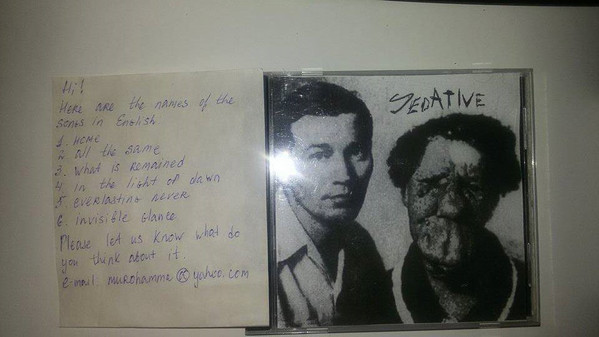 Hi!
Here are the names of the
songs in English
1. Home
2. all the same
3. What is remained
4. in the light of dawn
5. Everlasting never
6. invisible glance.
Please let us know what do
you think about it.
e-mail. murohamma@yahoo.com
SEDATIVE